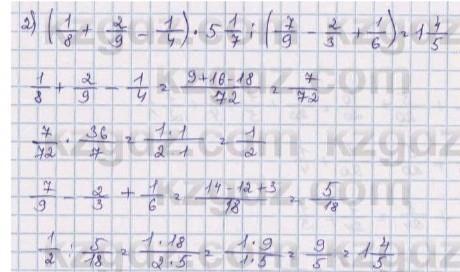 2) (1/8 + 2/9 - 1/4) · 5 1/7 : (7/9 - 2/3 + 1/6) = 1 4/5
1/8 + 2/9 - 1/4 = 9+16-18/72 = 7/72
7/72 · 36/7 = 1·1/2·1 = 1/2
7/9 - 2/3 + 1/6 = 14-12+3/18 = 5/18
1/2 : 5/18 = 1·18/2·5 = 1·9/1·5 = 9/5 = 1 4/5